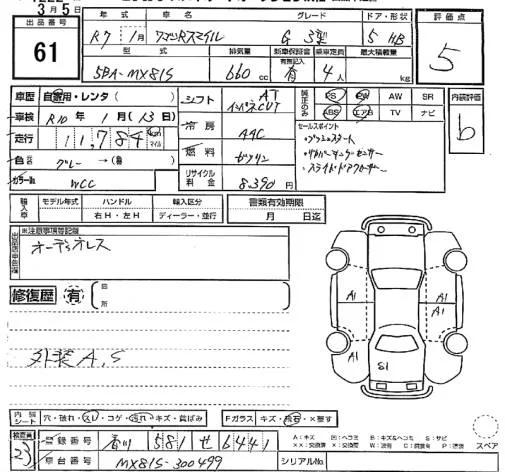 3月5日
出品番号
61
年式 車名 グレード ドア・形状
R7 1月 ワゴンRスマイル G 3型 5 HB
評価点
5
型式 排気量 新車保証書 乗車定員 最大積載量
有無記入
5BA-MX81S 660cc 有 4人 kg
車歴 自家用・レンタ( ) シフト AT
インパネCVT
車検 R10年1月(13日)
走行 11,784 km マイル
色 グレー→( )
カラーNo. WCC
冷房 AAC
燃料 ガソリン
リサイクル料金 8,390円
純正のみ PS PW AW SR
ABS エアB TV ナビ
セールスポイント
・プッシュスタート
・スライドドアクローザー
内装評価
b
輸入車 モデル年式 ハンドル 輸入区分
年 右H・左H ディーラー・並行
書類有効期限
月 日迄
※注意事項等記載
オーディオレス
修復歴 有 箇所
外装A,S
A1 A1
A1 A1
S1
内装 シート 穴・破れ・スレ・コゲ・汚れ・キズ・黄ばみ
Fガラス キズ・飛石・×要す
検査員
登録番号 香川 581 せ 6441
車台番号 MX81S-300499
シリアルNo.
A:キズ U:ヘコミ B:キズ&ヘコミ S:サビ
スペア